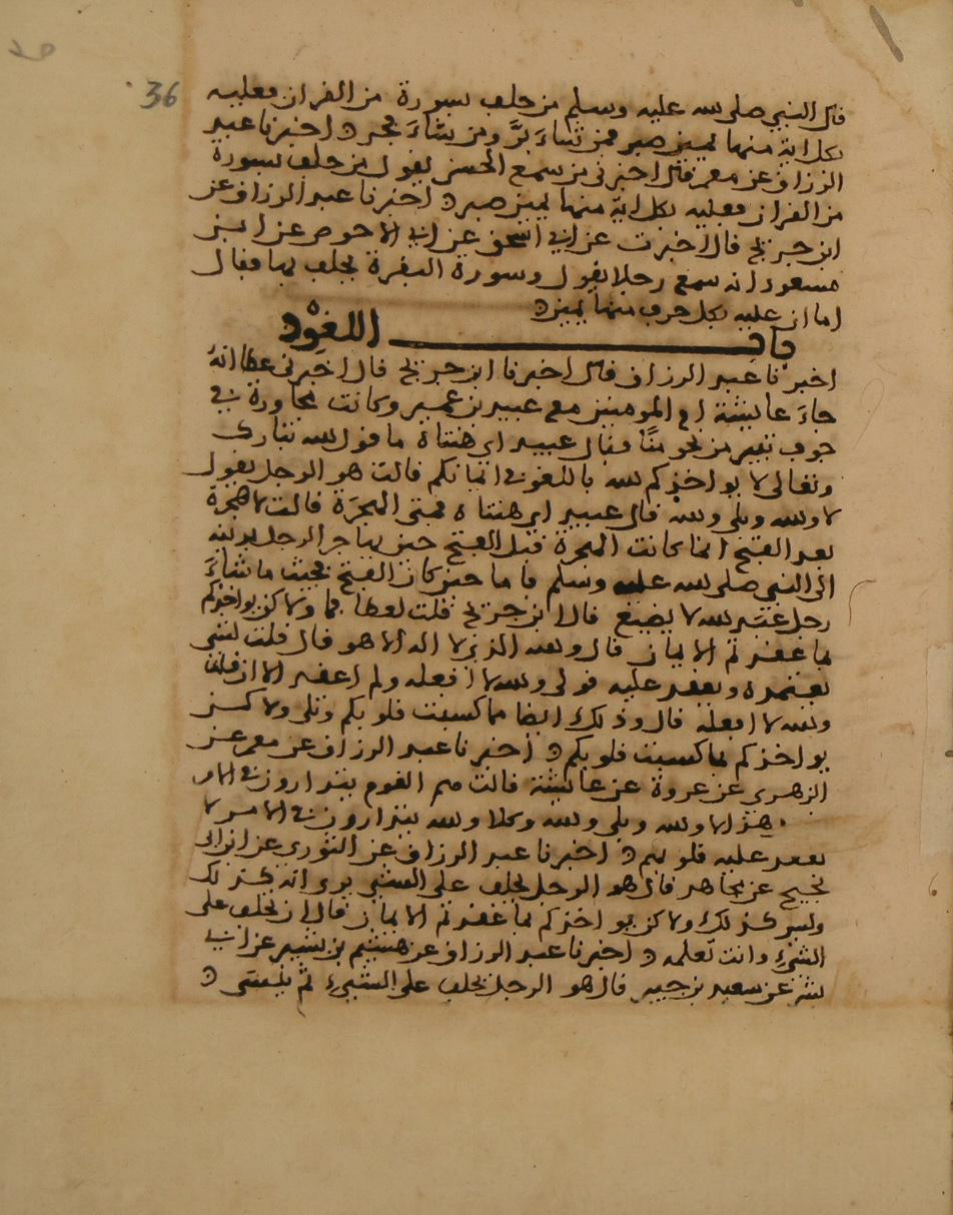 36
قال النبي صلى الله عليه وسلم من حلف بسورة من القران فعليه
بكل اية منها يمين صبر فمن شاء برَّ ومن شاء فجر اخبرنا عبد
الرزاق عن معمر قال اخبرني من سمع الحسن يقول من حلف بسورة
من القران فعليه بكل اية منها يمين صبر اخبرنا عبد الرزاق عن
ابن جريج قال اخبرت عن ابي اسحق عن ابي الاحوص عن ابن
مسعود انه سمع رجلا يقول وسورة البقرة يحلف بها فقال
اما ان عليه بكل حرف منها يمين
باب اللغو
اخبرنا عبد الرزاق قال اخبرنا ابن جريج قال اخبرني عطا انه
جاء عايشة ام المومنين مع عبيد بن عمير وكانت مجاورة في
جوف ثبير من نحو منًا فقال عبيد اي هنتاه ما قول الله تبارك
وتعالى لا يواخذكم الله باللغو في ايمانكم قالت هو الرجل يقول
لا والله وبلى والله قال عبيد اي هنتاه فمتى الهجرة قالت لا هجرة
بعد الفتح انما كانت الهجرة قبل الفتح حين يهاجر الرجل بدينه
الى النبي صلى الله عليه وسلم فاما حين كان الفتح فحيث ما شاء
رجل عبد الله لا يضيع قال ابن جريج قلت لعطا فما ولاكن يواخذكم
بما عقدتم الايمان قال والله الذي لا اله الا هو قال قلت لشي
يعتمده ويعقد عليه قولي والله لا افعله ولم اعقد الا ان قلت
والله لا افعله قال وذلك ايضا مما كسبت قلوبكم وتلى ولاكن
يواخذكم بما كسبت قلوبكم اخبرنا عبد الرزاق عن معمر عن
الزهري عن عروة عن عايشة قالت هم القوم يتدارون في الامر
هذا لا والله وبلى والله وكلا والله يتدارون في الامر لا
يعقد عليه قلوبهم اخبرنا عبد الرزاق عن الثوري عن ابن ابي
نجيح عن مجاهد قال هو الرجل يحلف على الشي يرى انه كذلك
وليس كذلك ولاكن يواخذكم بما عقدتم الايمان قال ان يحلف على
الشيء وانت تعلمه اخبرنا عبد الرزاق عن هشيم بن بشير عن ابي
بشر عن سعيد بن جبير قال هو الرجل يحلف على الشيء ثم ينسى